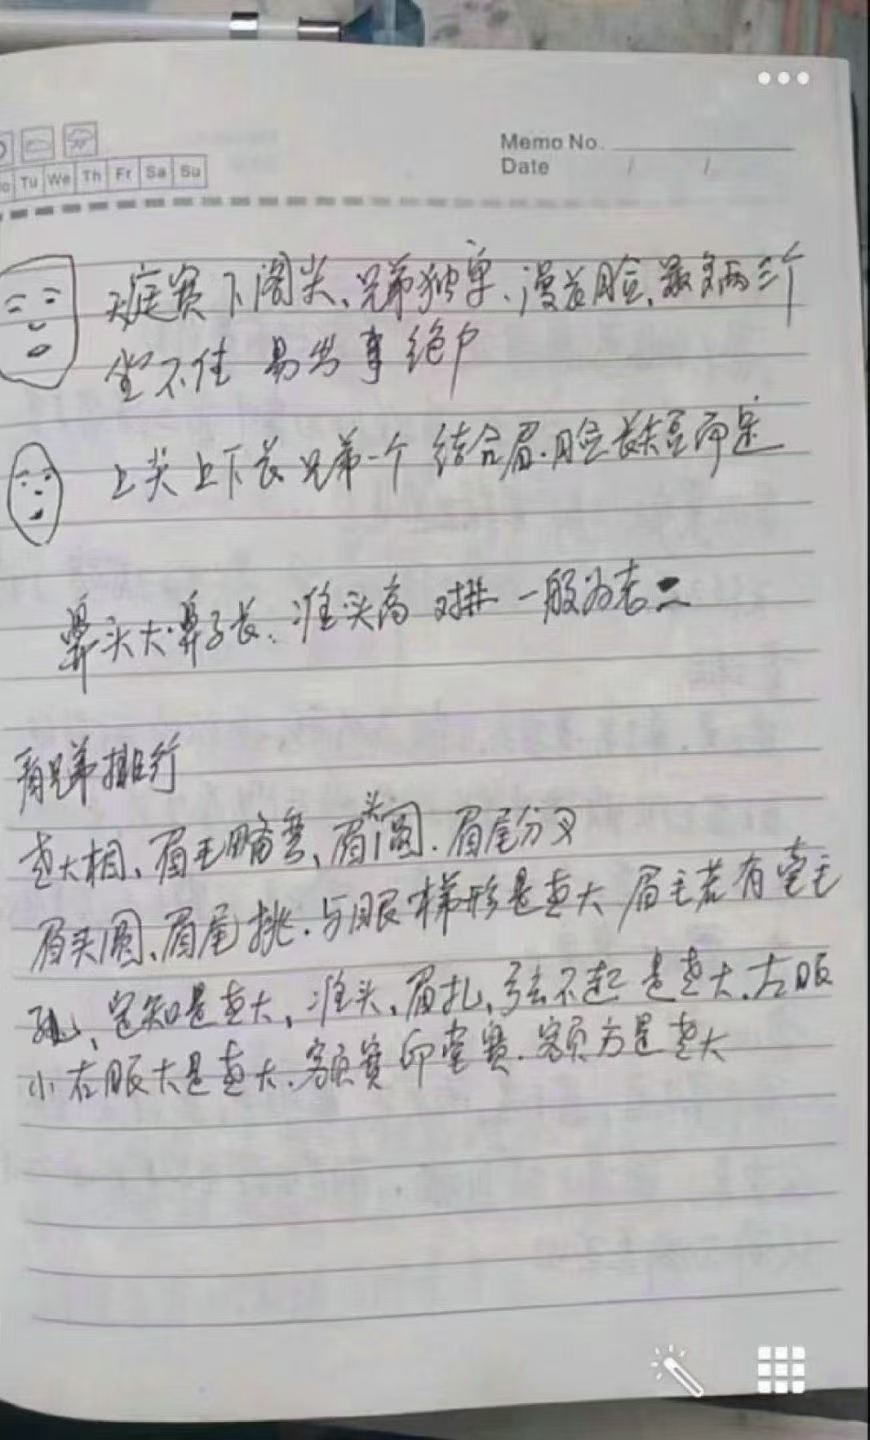 Memo No.
Tu We Th Fr Sa Su
Date / /
天庭宽下阁尖、兄弟独单、漫长脸、最多两三个
坐不住 易出事 绝户
上尖上下长 兄弟一个 结合眉.脸长短而定
鼻头大.鼻子长、准头高 对排 一般为老二
看兄弟排行
老大相、眉毛略弯、眉头圆.眉尾分叉
眉头圆、眉尾挑.与眼梯形是老大 眉毛若有毫毛
定知是老大、准头、眉扎、弦不起 是老大.左眼
小右眼大是老大.额宽印堂宽.额方是老大